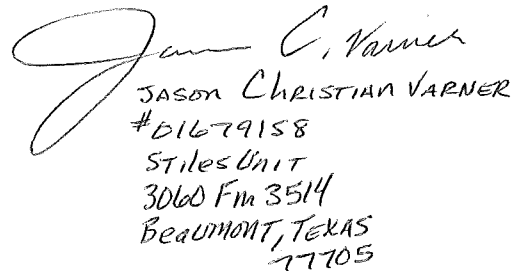 Jason C. Varner
JASON CHRISTIAN VARNER
#01679158
STILES UNIT
3060 FM 3514
BEAUMONT, TEXAS
77705